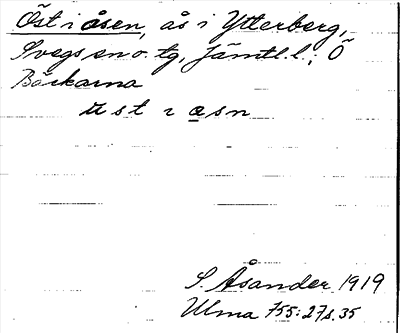 Öst i åsen, ås i Ytterberg,
Svegs sn o. tg, Jämtl. l.; Ö
Bäckarna
st ı
S. Åsander 1919
Ulma 755:27 s. 35